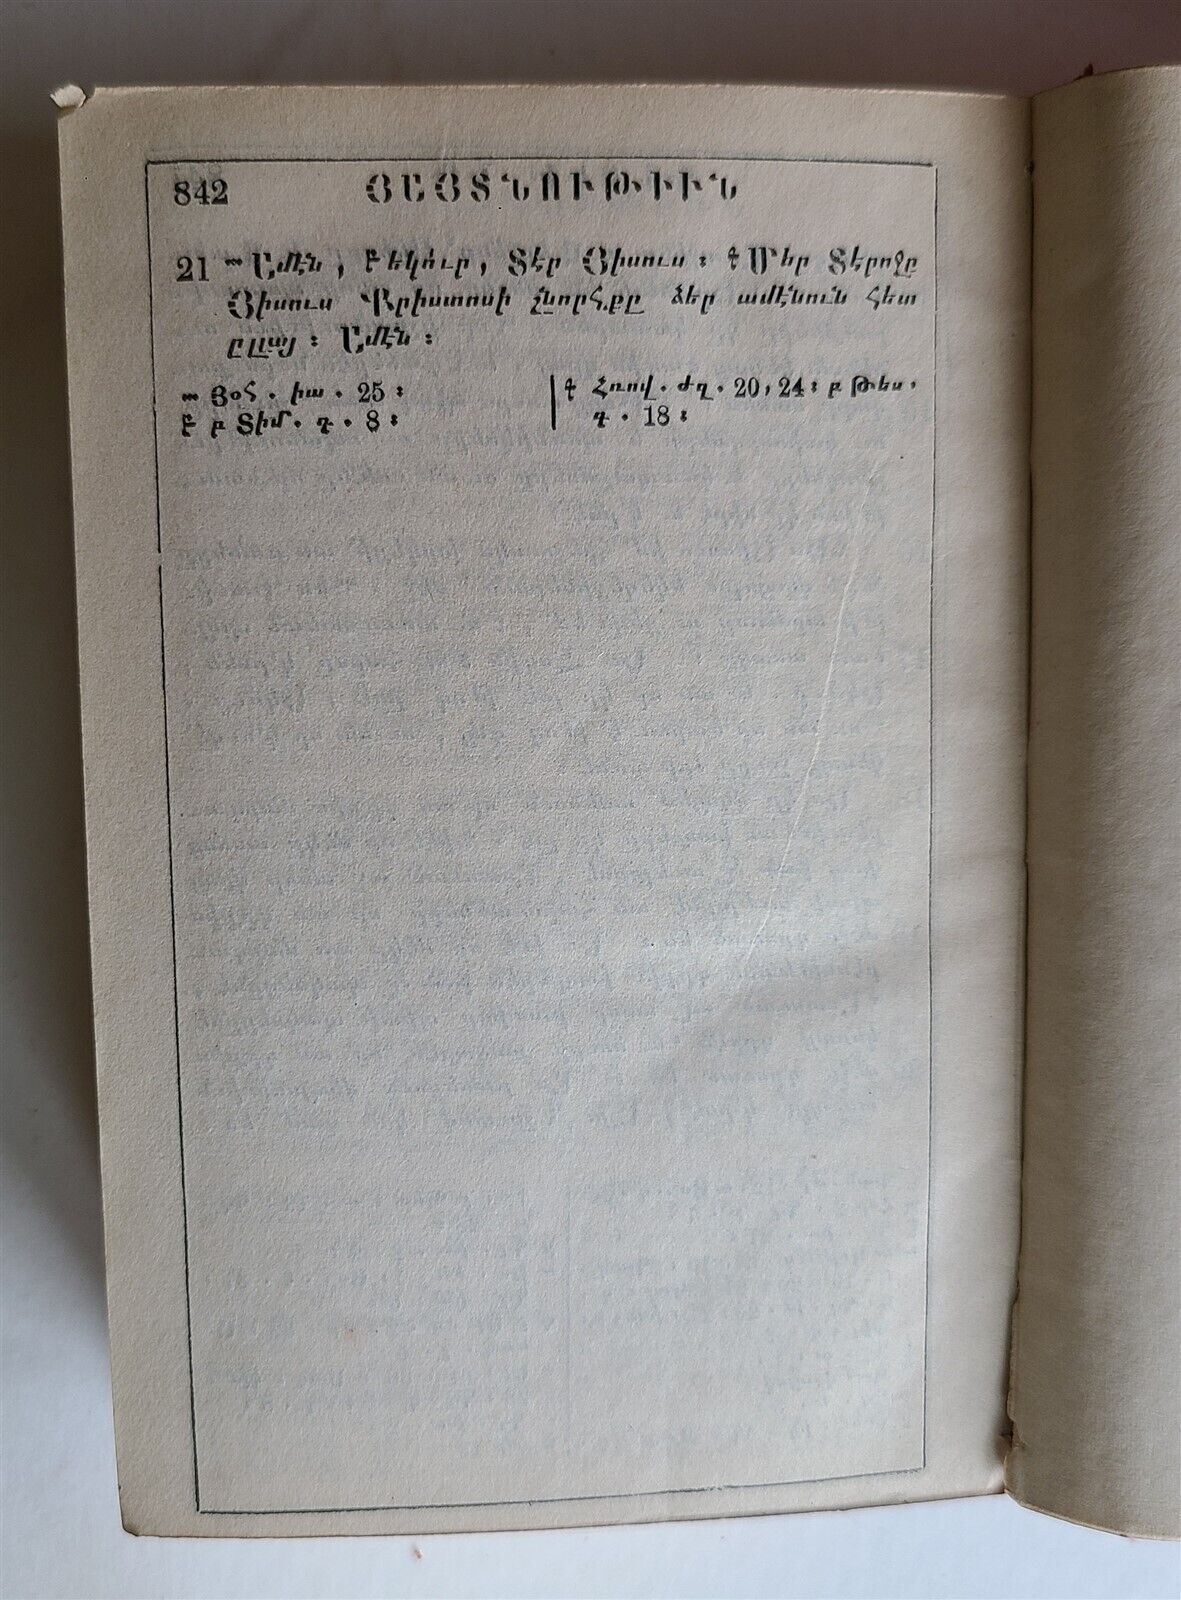 842 ՅԱՅՏՆՈՒԹԻԻՆ
21 ա Ամէն , բ եկո՛ւր , Տէր Յիսուս ։ գ Մեր Տերոջը
Յիսուս Քրիստոսի շնորհքը ձեր ամէնուն հետ
ըլլայ ։ Ամէն ։
ա Յօհ . իա . 25 ։
բ բ Տիմ . դ . 8 ։
գ Հռով . ժզ . 20 , 24 ։ բ Թես .
գ . 18 ։